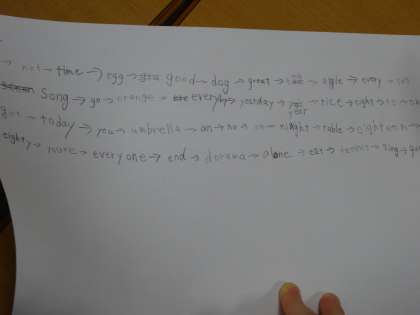 → not → time → egg → good → dog → great → → apple → every →
song → go → orange → everyday → yesterday → year → rice → eight →
got → today → you → umbrella → on → no → on → night → table → eighteen →
eighty → you're → everyone → end → dorava → alone → eat → tennis → sing →